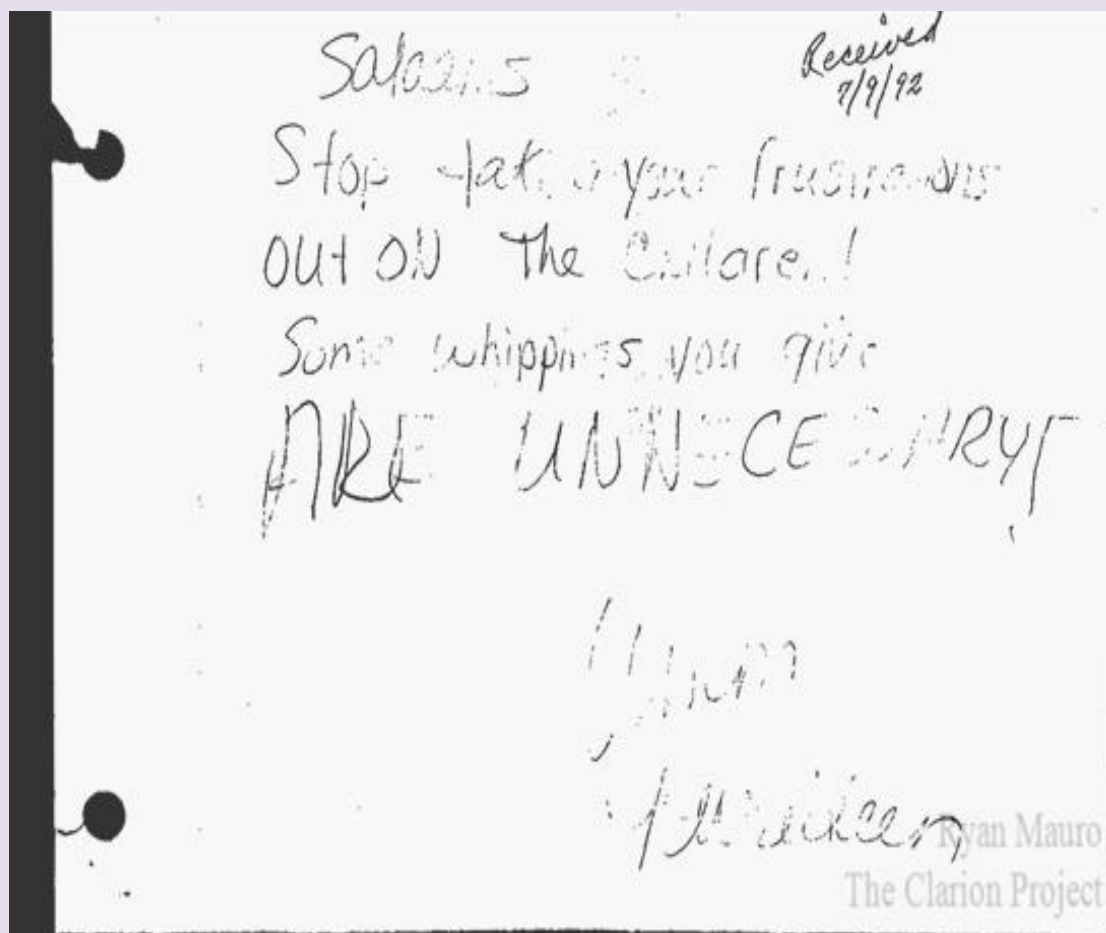 Salaams
Received
7/9/92
Stop taking your frustrations
OUT ON The Children!
Some whippings you give
ARE UNNECESSARY!
Ryan Mauro
The Clarion Project